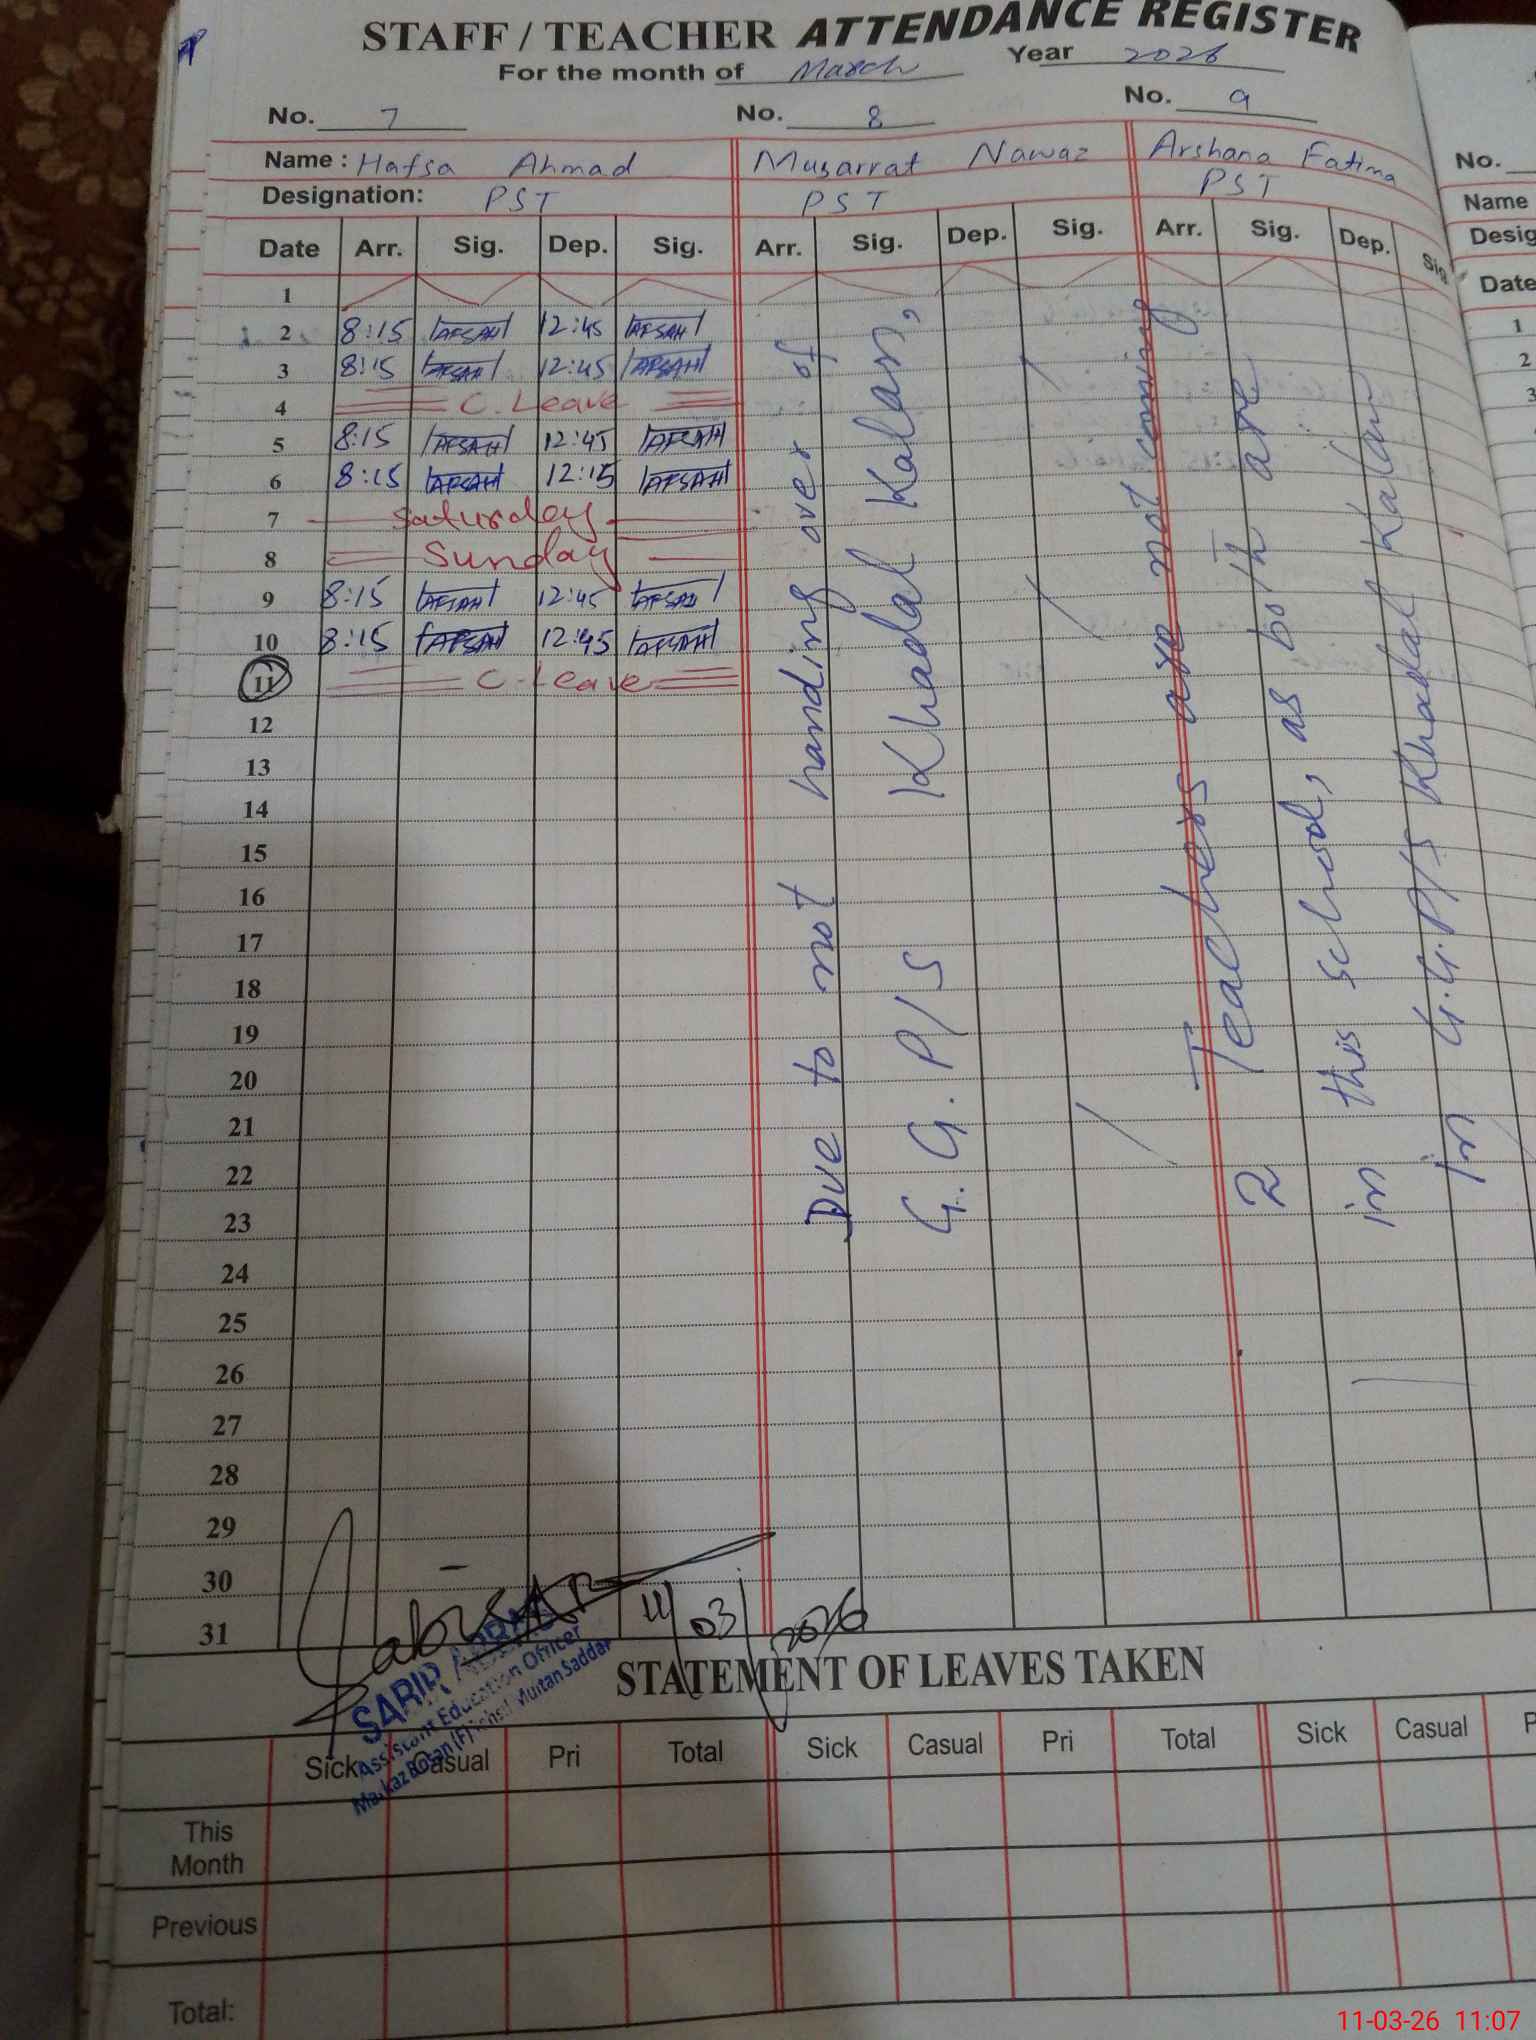 STAFF / TEACHER ATTENDANCE REGISTER
For the month of March Year 2026
No. 7 No. 8 No. 9
Name : Hafsa Ahmad Musarrat Nawaz Arshana Fatima
Designation: PST PST PST
Date Arr. Sig. Dep. Sig. Arr. Sig. Dep. Sig. Arr. Sig. Dep. Sig.
1
2 8:15 HAFSAH 12:45 HAFSAH
3 8:15 HAFSAH 12:45 HAFSAH
4 C. Leave
5 8:15 HAFSAH 12:45 HAFSAH
6 8:15 HAFSAH 12:15 HAFSAH
7 Saturday
8 Sunday
9 8:15 HAFSAH 12:45 HAFSAH
10 8:15 HAFSAH 12:45 HAFSAH
11 C. Leave
12
13
14
15
16
17
18
19
20
21
22
23
24
25
26
27
28
29
30
31
Due to not handing over of
G. G. P/S Khadal Kalan,
2 Teachers are not coming
in this school, as both are
in G.G.P/S Khadal Kalan
11/03/2026
SABIR
Assistant Education Officer
Markaz Bosan (F) Tehsil Multan Saddar
STATEMENT OF LEAVES TAKEN
Sick Casual Pri Total Sick Casual Pri Total Sick Casual P
This
Month
Previous
Total:
No.
Name
Desig
Date
1
2
3
11-03-26 11:07